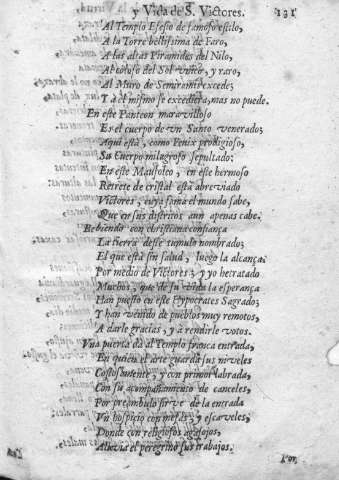 y Vida de S. Victores. 131
Al Templo Efesio de famoso estilo,
A la Torre bellissima de Faro,
A las altas Piramides del Nilo,
Al coloso del Sol vnico, y raro,
Al Muro de Semiramis excede;
Y à el mismo se excediera, mas no puede.
En este Panteon maravilloso
Es el cuerpo de vn Santo venerado;
Aqui està, como Fenix prodigioso,
Su Cuerpo milagroso sepultado:
En este Mausoleo, en este hermoso
Retrete de cristal està abreviado
Victores, cuya fama el mundo sabe,
Que en sus distritos aun apenas cabe.
Bebiendo con christiana confiança
La tierra deste tumulo nombrado;
El que està sin salud, luego la alcança,
Por medio de Victores; y yo he tratado
Muchos, que de su vida la esperança
Han puesto en este Hypocrates Sagrado;
Y han venido de pueblos muy remotos,
A darle gracias, y à rendirle votos.
Vna puerta dà al Templo franca entrada,
En quien el arte guarda sus niveles
Costosamente, y con primor labrada,
Con su acompañamiento de canceles,
Por preambulo sirve de la entrada
Vn hospicio con mesas, y escaveles,
Donde con religiosos agasajos,
Alivia el peregrino sus trabajos.
Por